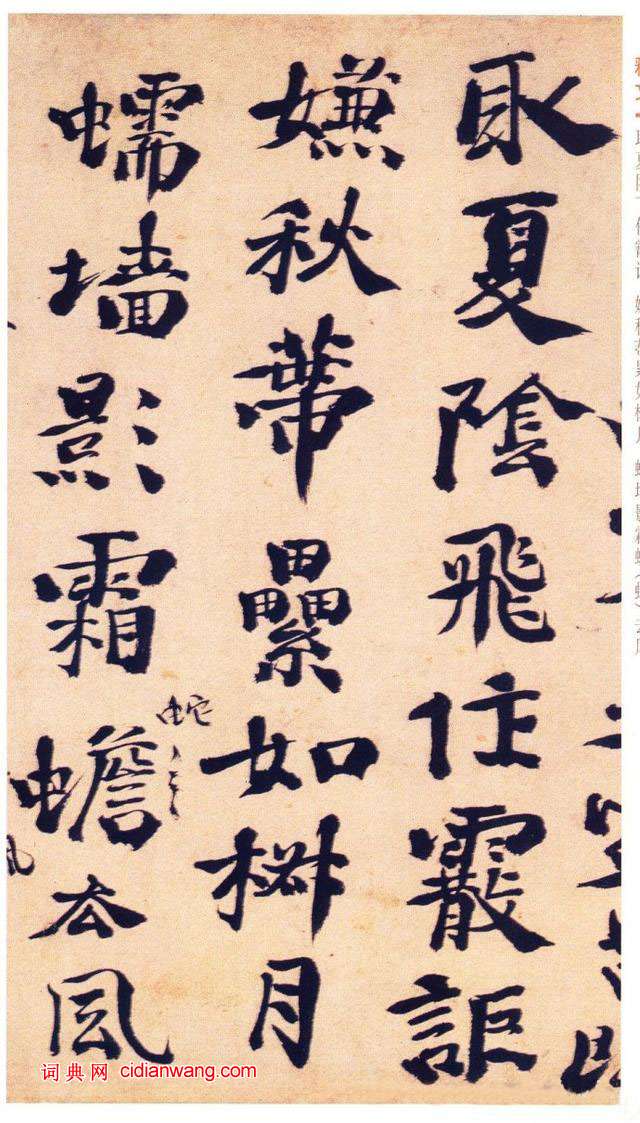 取夏陰飛住霰詎
嫌秋蔕纍如樹月
蠕墙影霜蟾去風
蛇
词典网 cidianwang.com